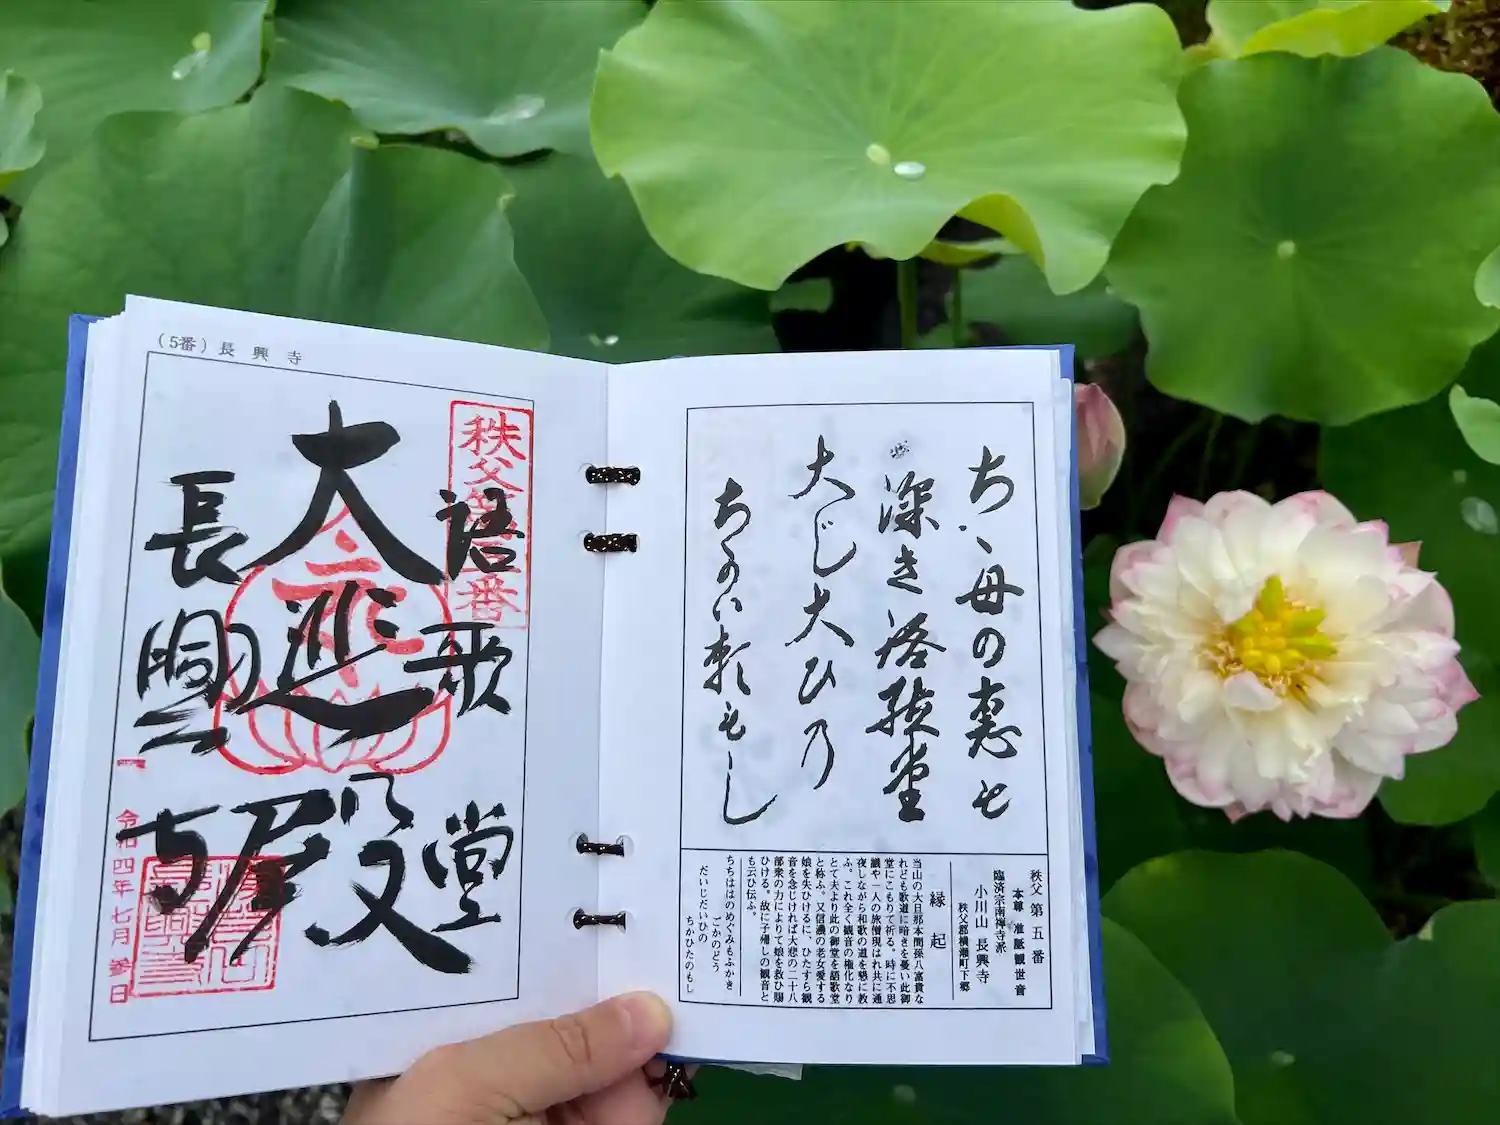 ちゝ母の恵も
深き語歌堂
大じ大ひの
ちかひ頼もし
秩父第五番
本尊 准胝観世音
臨済宗南禅寺派
小川山 長興寺
秩父郡横瀬町下郷
縁起
当山の大旦那本間孫八富貴な
れども歌道に暗きを憂い此御
堂にこもりて祈る。時に不思
議や一人の旅僧現はれ共に通
夜しながら和歌の道を懇に教
ふ。これ全く観音の権化なり
とて夫より此の御堂を語歌堂
と称ふ。又信濃の老女愛する
娘を失ひけるに、ひたすら観
音を念じければ大悲の二十八
部衆の力によりて娘を救ひ賜
ひける。故に子帰しの観音と
も云ひ伝ふ。
ちちははのめぐみもふかき
ごかのどう
だいじだいひの
ちかひたのもし
(5番) 長興寺
秩父第五番
語歌堂
大悲殿
長興寺
令和四年七月参日